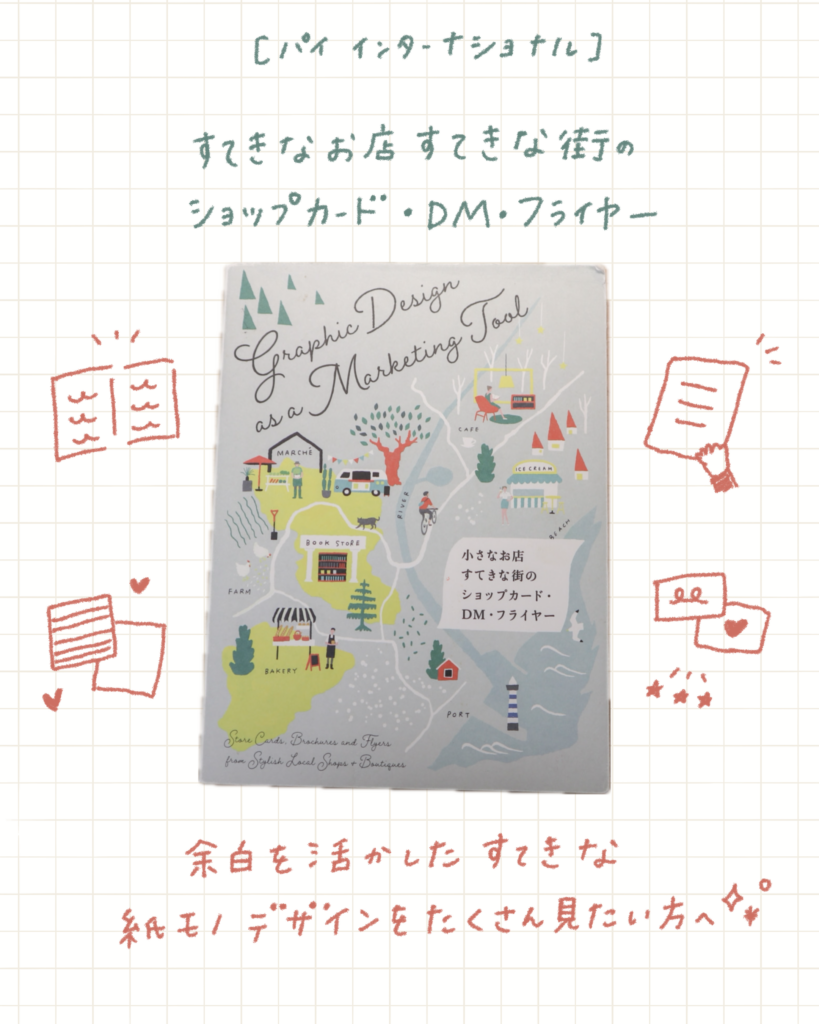 [パイ インターナショナル]
すてきなお店 すてきな街の
ショップカード・DM・フライヤー
Graphic Design
as a Marketing Tool
CAFE
MARCHÉ
ICE CREAM
RIVER
BEACH
BOOK STORE
小さなお店
すてきな街の
ショップカード・
DM・フライヤー
FARM
BAKERY
PORT
Store Cards, Brochures and Flyers
from Stylish Local Shops + Boutiques
余白を活かした すてきな
紙モノ デザインをたくさん見たい方へ